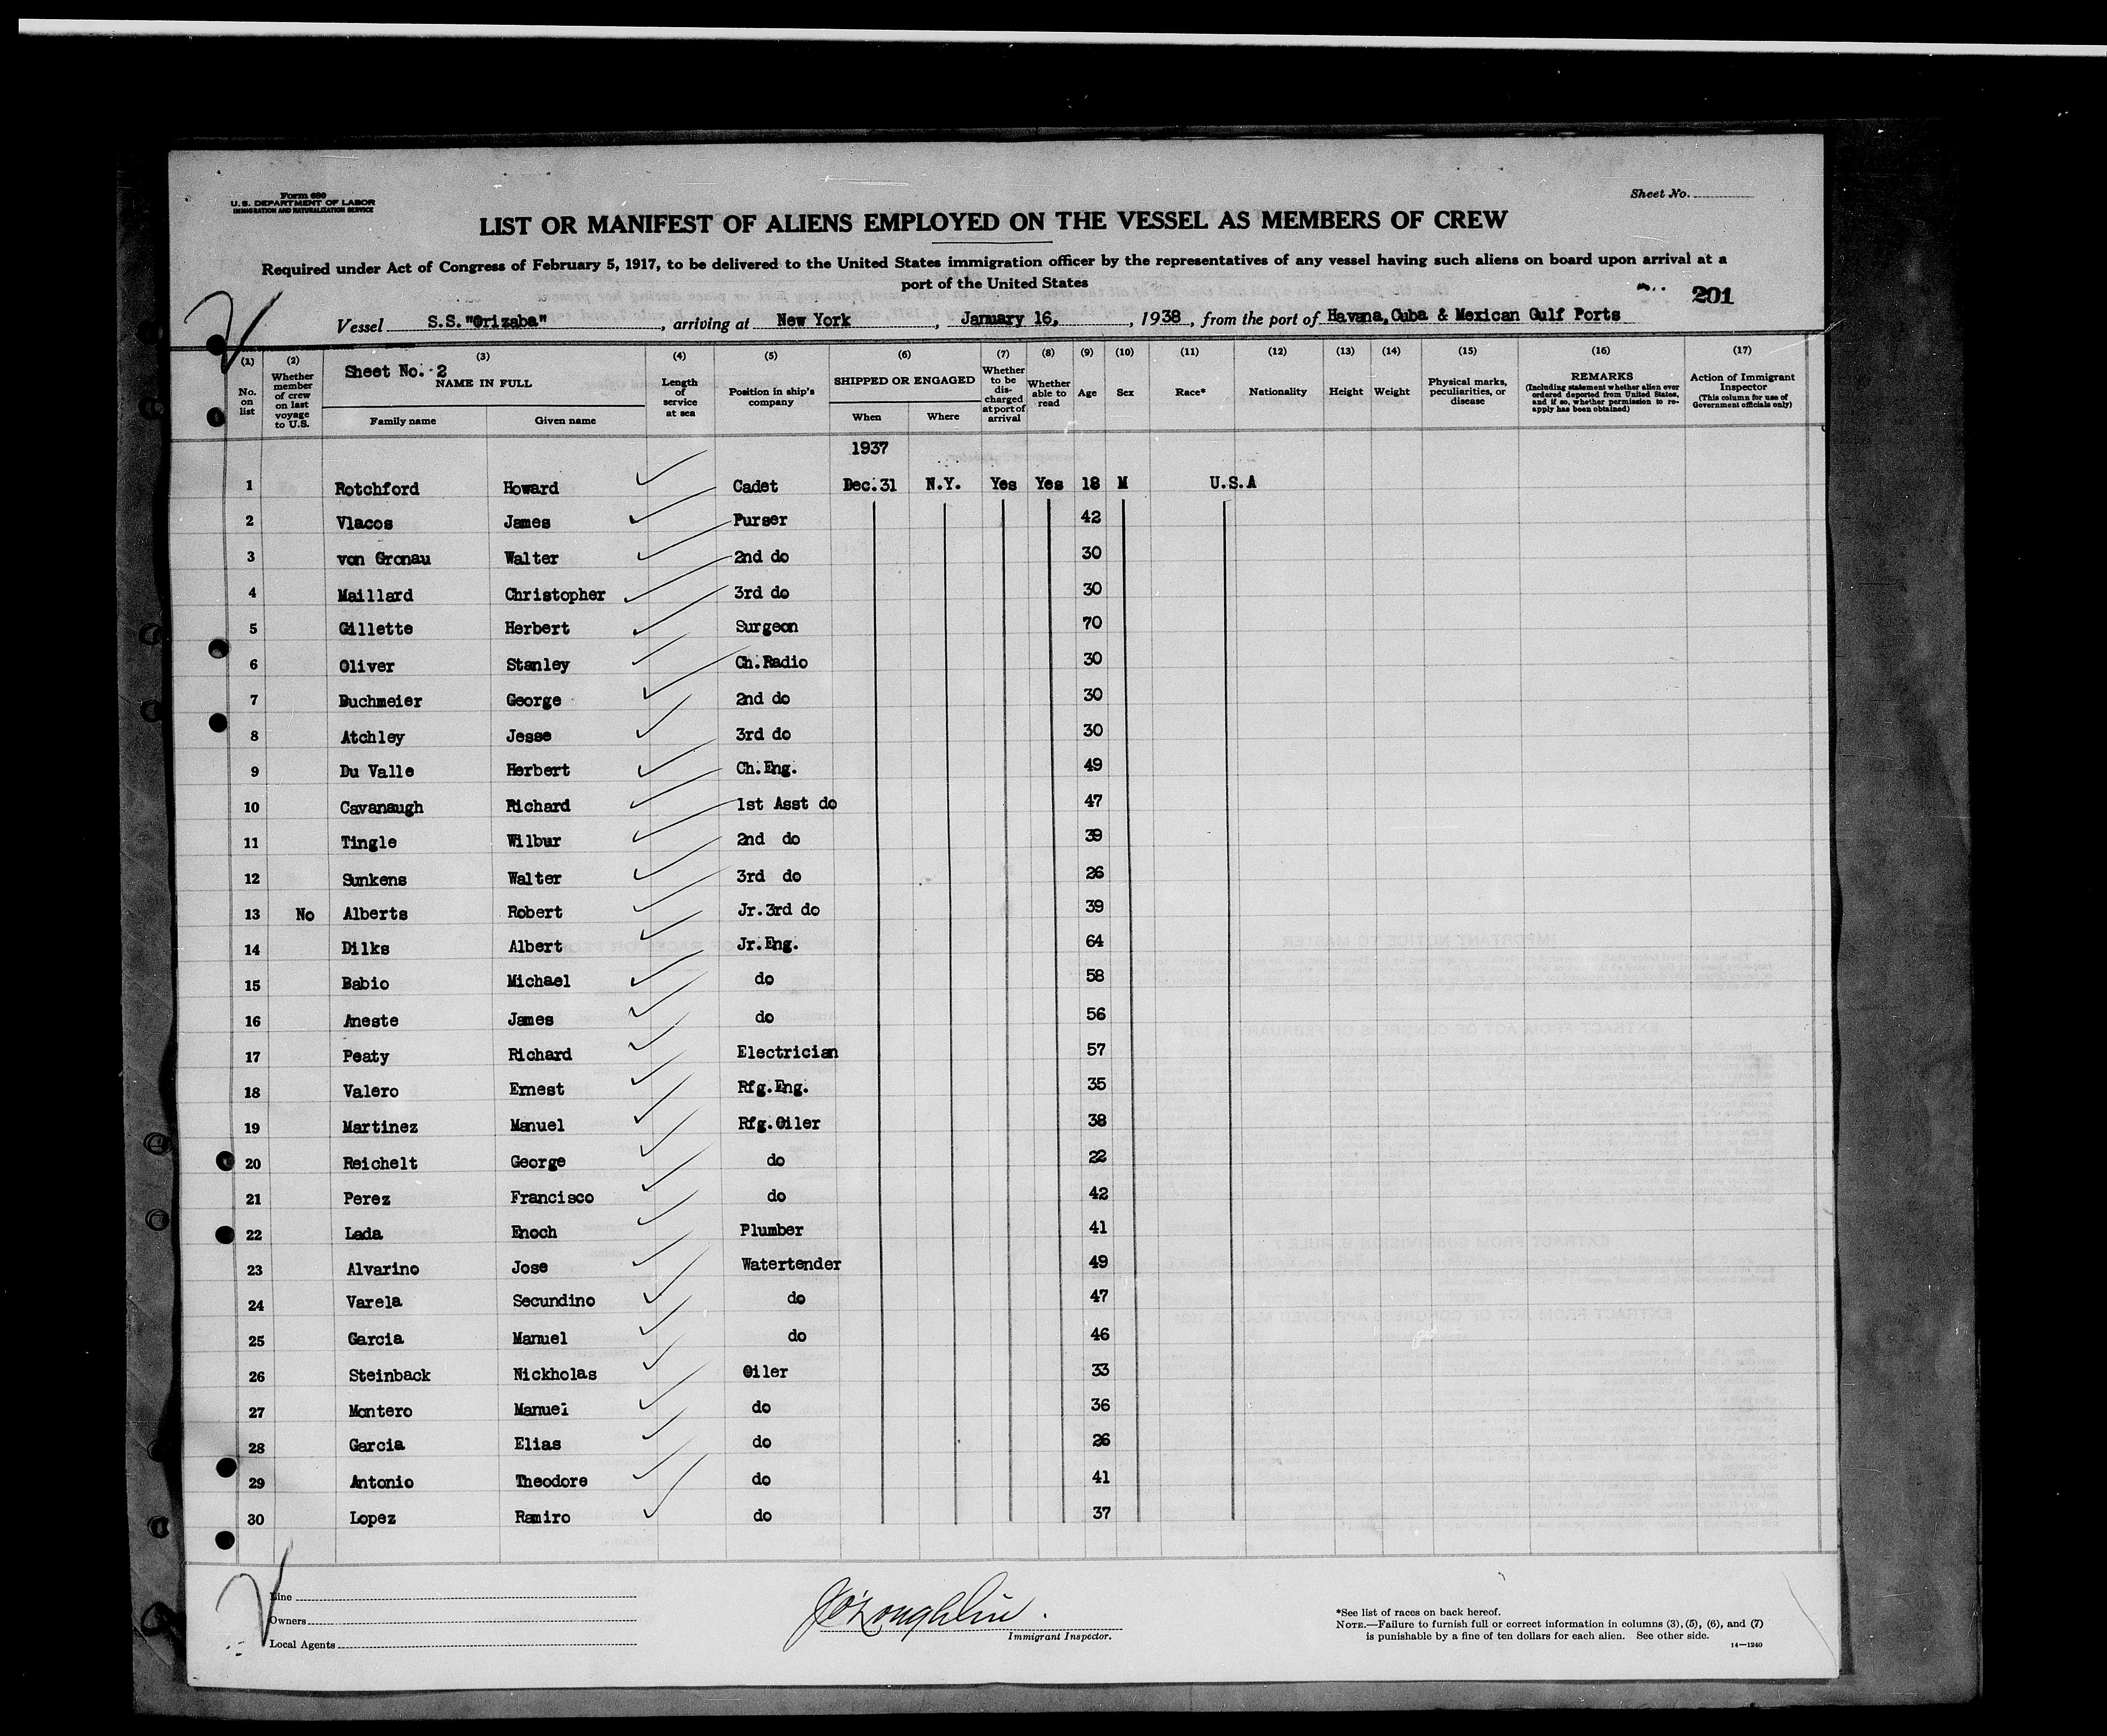 Form 680
U. S. DEPARTMENT OF LABOR
IMMIGRATION AND NATURALIZATION SERVICE
Sheet No.
LIST OR MANIFEST OF ALIENS EMPLOYED ON THE VESSEL AS MEMBERS OF CREW
Required under Act of Congress of February 5, 1917, to be delivered to the United States immigration officer by the representatives of any vessel having such aliens on board upon arrival at a
port of the United States
201
Vessel S.S."Orizaba", arriving at New York, January 16, , 1938, from the port of Havana, Cuba & Mexican Gulf Ports
(1) (2) (3) (4) (5) (6) (7) (8) (9) (10) (11) (12) (13) (14) (15) (16) (17)
No. on list
Whether member of crew on last voyage to U.S.
Sheet No. 2
NAME IN FULL
Family name Given name
Length of service at sea
Position in ship's company
SHIPPED OR ENGAGED
When Where
Whether to be discharged at port of arrival
Whether able to read
Age
Sex
Race*
Nationality
Height
Weight
Physical marks, peculiarities, or disease
REMARKS
(Including statement whether alien ever ordered deported from United States, and if so, whether permission to re-apply has been obtained)
Action of Immigrant Inspector
(This column for use of Government officials only)
1937
1 Rotchford Howard Cadet Dec.31 N.Y. Yes Yes 18 M U.S.A
2 Vlacos James Purser 42
3 von Gronau Walter 2nd do 30
4 Maillard Christopher 3rd do 30
5 Gillette Herbert Surgeon 70
6 Oliver Stanley Ch.Radio 30
7 Buchmeier George 2nd do 30
8 Atchley Jesse 3rd do 30
9 Du Valle Herbert Ch.Eng. 49
10 Cavanaugh Richard 1st Asst do 47
11 Tingle Wilbur 2nd do 39
12 Sunkens Walter 3rd do 26
13 No Alberts Robert Jr.3rd do 39
14 Dilks Albert Jr.Eng. 64
15 Babio Michael do 58
16 Aneste James do 56
17 Peaty Richard Electrician 57
18 Valero Ernest Rfg.Eng. 35
19 Martinez Manuel Rfg.Oiler 38
20 Reichelt George do 22
21 Perez Francisco do 42
22 Lada Enoch Plumber 41
23 Alvarino Jose Watertender 49
24 Varela Secundino do 47
25 Garcia Manuel do 46
26 Steinback Nickholas Oiler 33
27 Montero Manuel do 36
28 Garcia Elias do 26
29 Antonio Theodore do 41
30 Lopez Ramiro do 37
Line
Owners
Local Agents
J O'Loughlin.
Immigrant Inspector.
*See list of races on back hereof.
NOTE.—Failure to furnish full or correct information in columns (3), (5), (6), and (7)
is punishable by a fine of ten dollars for each alien. See other side.
14—1240